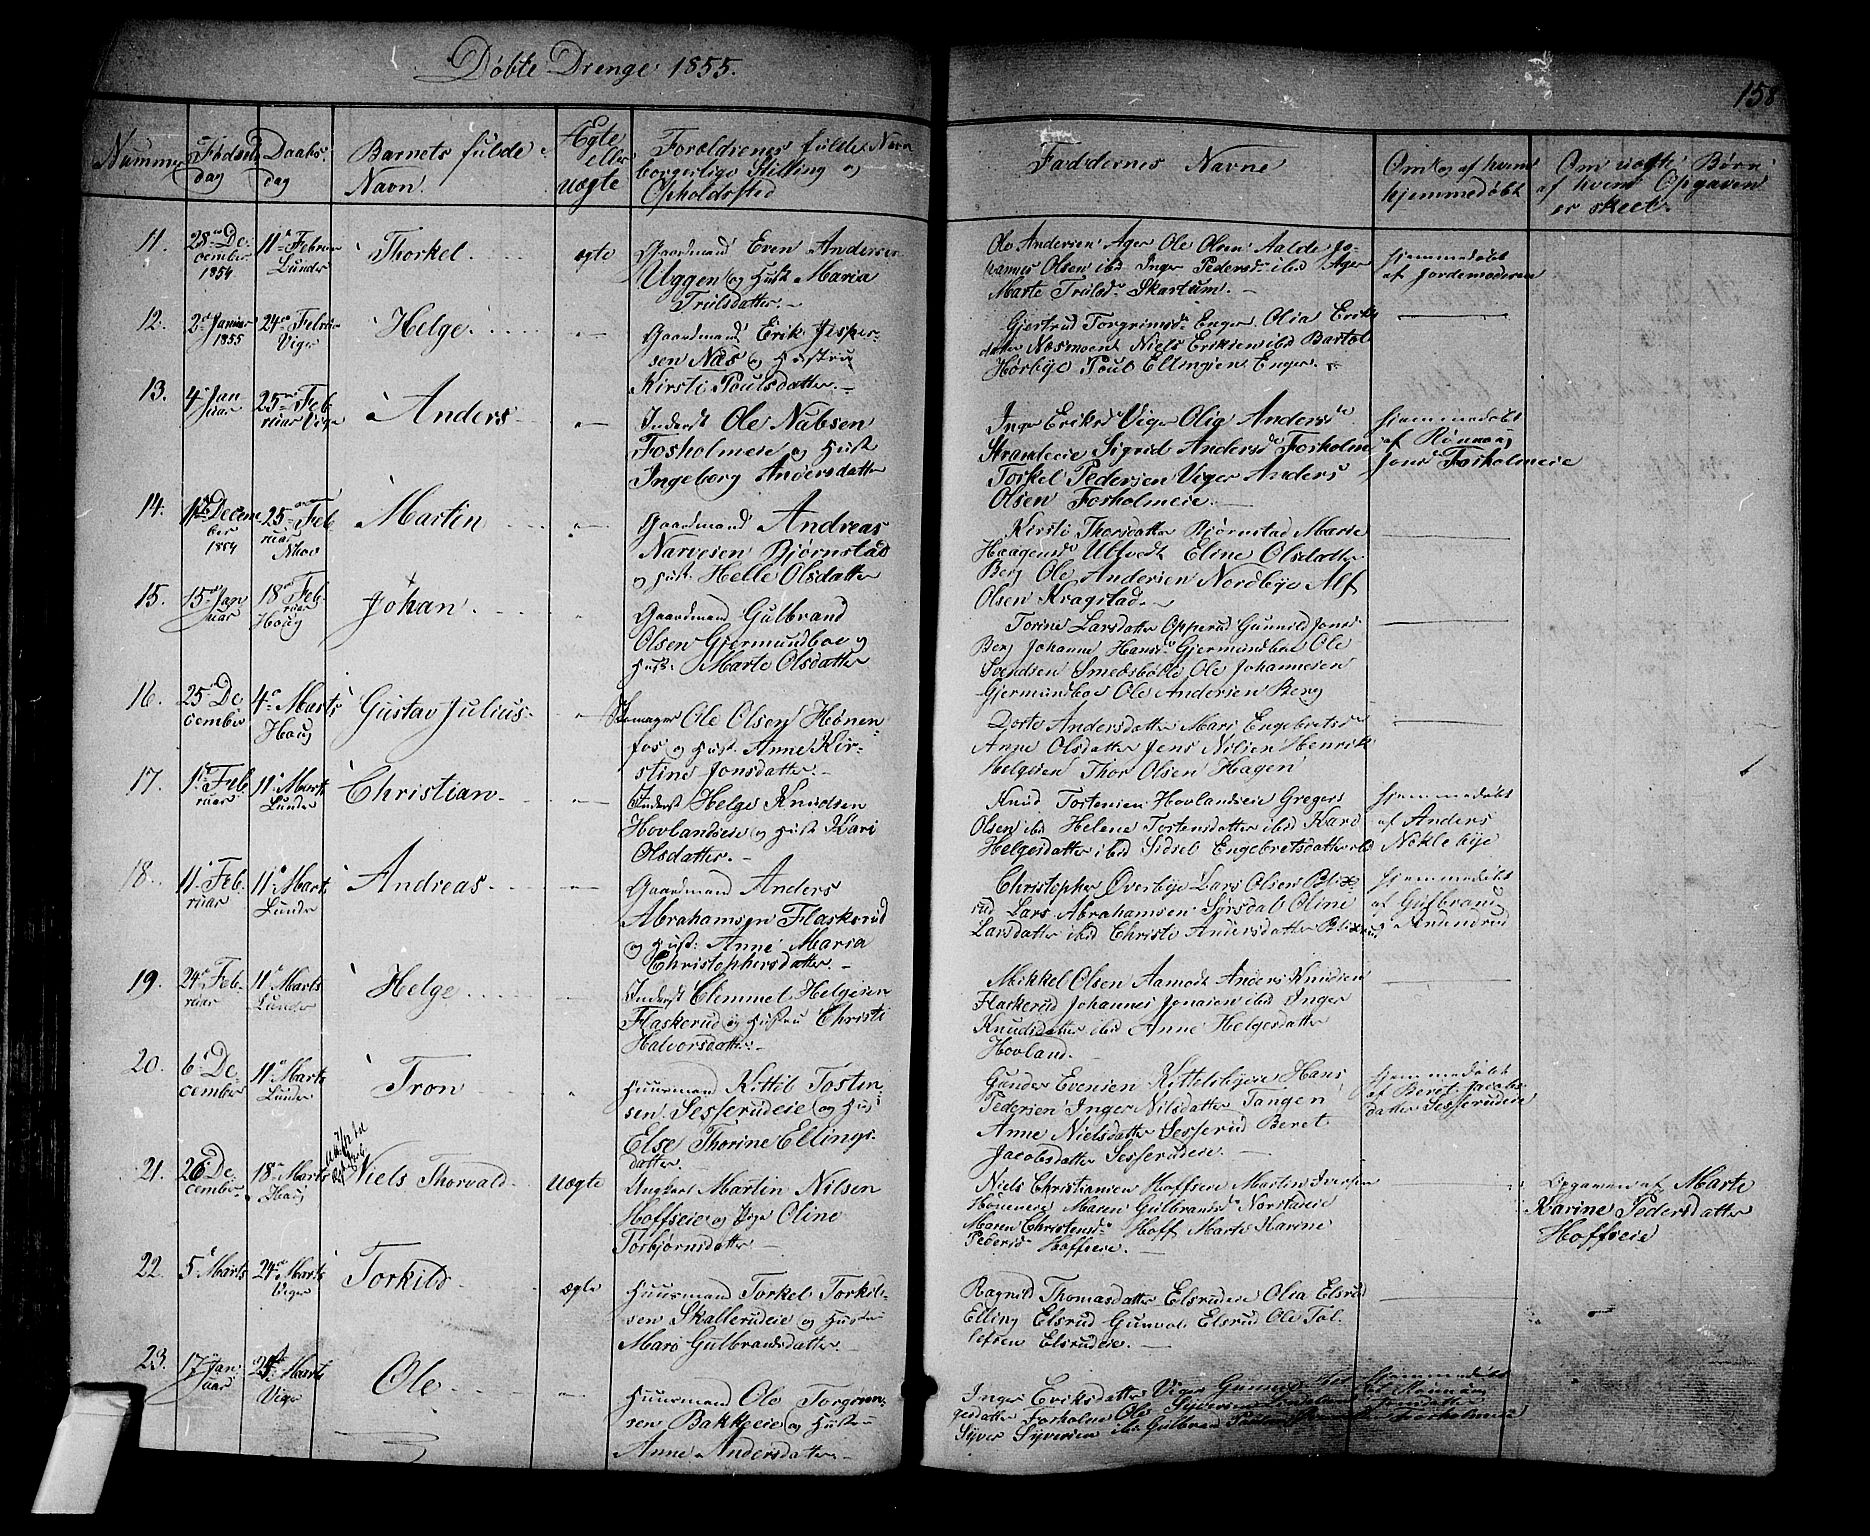 Døbte Drenge 1855.
158
Nummer
Fødsels
dag
Daabs
dag
Barnets fulde
Navn.
Ægte
eller
Uægte
Forældrenes fulde Navn
borgerlige Stilling og
Opholdssted
Faddernes Navne
Om og af hvem
hjemmedøbt
Om uægte Børn
af hvem Opgaven
er skeet.
11.
28 De
cember
1854
11 Februar
Lunder
Thorkel
ægte
Gaardmand Even Andersen
Uggen og Hust Maria
Trulsdatter.
Ole Andersen Ager Ole Olsen Aalde Jo-
hannes Olsen ibd Inger Pedersd ibid Ager
Marte Trulsd Skartum.
Hjemmedøbt
af Jordemoderen
12.
2 Januar
1855
24 Februar
Viger
Helge
Gaardmand Erik Jesper-
sen Næs og Hustru
Kirsti Poulsdatter.
Gjertrud Torgrimsd Enger Olia Eriks
datter Næsmoen Niels Eriksen ibd Bartol
Hørbye Poul Ellingsen Enger.
13.
4 Jan
uar
25 Feb
ruar Viger
Anders
Inderst Ole Nubsen
Fosholmeie og Hust
Ingeborg Andersdatter
Inger Eriksd Viger Olia Andersd
Strandeie Sigrid Andersd Fosholm
Torkel Pedersen Viger Anders
Olsen Fosholmeie.
Hjemmedøbt
af Rønnaug
Jonsd Fosholmeie
14.
Decem
ber
1854
25 Feb
ruar
Martin
Gaardmand Andreas
Narvesen Bjørnstad
og Hust Helle Olsdatter
Kirsti Thorsdatter Bjørnstad Marie
Haagensd Ultvedt Eline Olsdatter
Berg Ole Andersen Nordbye Alf
Olsen Kragstad.
15.
15 Jan
uar
18 Feb-
ruar
Houg
Johan
Gaardmand Gulbrand
Olsen Gjermundboe og
Hust: Marte Olsdatter
Torine Larsdatter Opperud Gunnild Jonsd
Berg Johanne Hansd Gjermundboe Ole
Svendsen Smedsbøle Ole Johannesen
Gjermundboe Ole Andersen Berg
16.
25 De
cember
4 Marts
Houg
Gustav Julius
Skomager Ole Olsen Hønen
fos og Hust Anne Kir-
stine Jonsdatter.
Dorte Andersdatter Mari Engebretsd
Anne Olsdatter Jens Nilsen Henrik
Helgesen Thor Olsen Hagen
17.
1 Feb
ruar
11 Marts
Lunder
Christian
Inderst Helge Knudsen
Hovlandseie og Hust Kari
Olsdatter.
Knud Tostensen Hovlandseie Gregers
Olsen ibd Helene Tostensdatter ibd Kari
Helgesdatter ibid Sidsel Engebretsdatter ibd
Hjemmedøbt
af Anders
Noklebye
18.
11 Feb-
ruar
11 Marts
Lunder
Andreas
Gaardmand Anders
Abrahamsen Flaskerud
og Hust: Anne Maria
Christophersdatter.
Christopher Øverbye Lars Olsen Blix
rud Lars Abrahamsen Sørsdal Oline
Larsdatter ibid Christi Andersdatter Blixrud
Hjemmedøbt
af Gulbrand
Amundrud
19.
24 Feb-
ruar
11 Marts
Lunder
Helge
Inderst Clemmet Helgesen
Flaskerud og Hustru Christi
Halvorsdatter.
Mikkel Olsen Aamodt Anders Knudsen
Flaskerud Johannes Jonasen ibid Inger
Knudsdatter ibid Anne Helgesdatter
Hovland.
20.
6 De
cember
11 Marts
Lunder
Tron
Huusmand Kittil Tosten
sen Sesserudeie og Hus
Else Thorine Ellings-
datter.
Gunder Evensen Kittelsbyeie Hans
Pedersen Inger Nilsdatter Tangen
Anne Nielsdatter Sesserud Beret
Jacobsdatter Sesserudeie.
Hjemmedøbt
af Beret Jacobs
datter Sesserudeie
21.
26 De
cember
18 Marts
Houg
Niels Thorvald
Uægte
Ungkarl Martin Nilsen
Hoffseie og Pige Oline
Torbjørnsdatter
Niels Christiansen Hoffseie Morten Iversen
Hønneneie Maren Gulbransd Norstaeie
Maren Christensd Hoff Marte Karine
Pedersd Hoffseie.
Opgaven af Marte
Karine Pedersdatter
Hoffseie
22.
5 Marts
24 Marts
Viger
Torkild
ægte
Huusmand Torkel Torkild-
sen Skallerudeie og Hustru
Mari Gulbrandsdatter.
Ragnild Thomasdatter Elsrudeie Olia Elsrud
Elling Elsrud Gunval Elsrud Ole Tol
lefsen Elsrudeie.
23.
17 Jan
uar
25 Marts
Viger
Ole
Huusmand Ole Torgrim-
sen Bakkeeie og Hustru
Anne Andersdatter.
Inger Eriksdatter Viger
datter Fosholm Ole Syversen
Syver Syversen ibd Gulbran
Hjemmedøbt